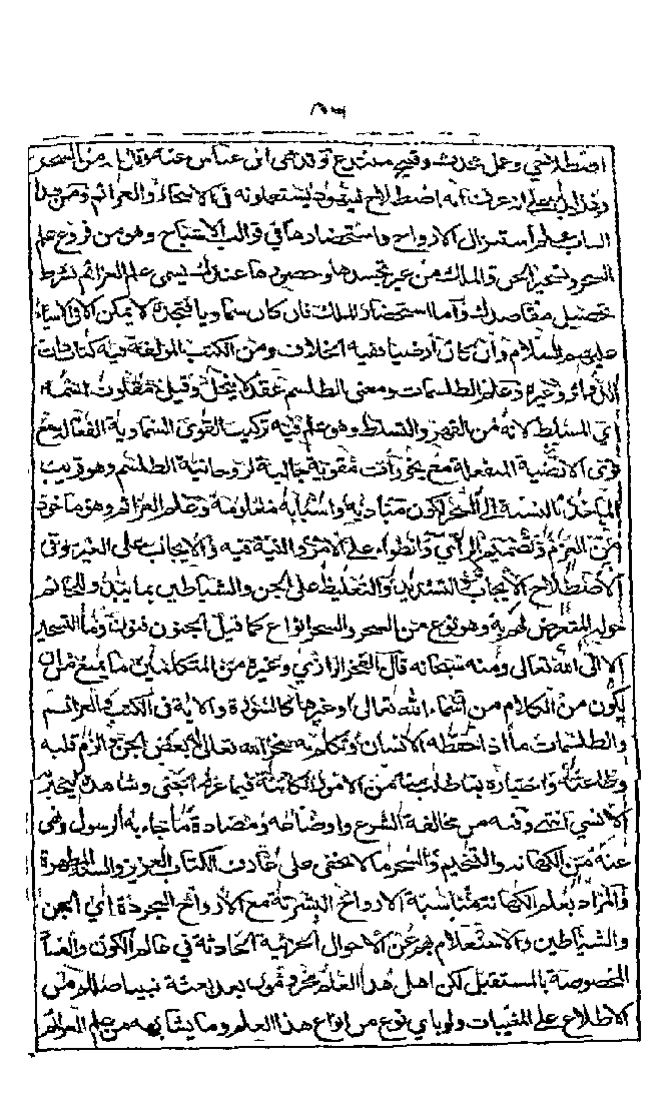 اصطلاحي وعمل وقبيح مبتدع وقد نهى ابن عباس عنه وقال من السحر
انه اصطلاح ليهود يستعملونه في الاحياء والعزائم ومن هذا
الباب علم استنزال الارواح واستحضارها في قوالب الاشباح وهو من فروع علم
السحر وتسخير الجن والملك من غير تجسدها وحضورها عندك يسمى علم العزائم بشرط
تحصيل مقاصدك واما استحضار الملك فان كان سماويا فتجسده لا يمكن الا في الانبياء
عليهم السلام وان كان ارضيا ففيه الخلاف ومن الكتب المؤلفة فيه كتاب ذات
وغيره وعلم الطلسمات ومعنى الطلسم عقد لا ينحل وقيل مقلوب اسمه
اي المسلط لانه من القهر والتسلط وهو علم فيه تركيب القوى السماوية الفعالة مع
قوى الارضية المنفعلة مع بخورات مقوية جالبة لروحانية الطلسم وهو قريب
المأخذ بالنسبة الى السحر لكون مباديه واسبابه معلومة وعلم العزائم وهو مأخوذ
من العزم وتصميم الرأي وانطواء على الامر والنية فيه والايجاب على الغير وفي
الاصطلاح الايجاب والتشديد والتغليظ على الجن والشياطين بما يبدو للحائم
حوله المتعرض لهم به وهو نوع من السحر والسحر انواع كما قيل الجنون فنون وما التسخير
الا الى الله تعالى ومنه سبحانه قال الفخر الرازي وغيره من المتكلمين ما يمنع من ان
يكون من الكلام من اسماء الله تعالى او غيرها كالسورة والآية في الكتب والعزائم
والطلسمات ما اذا حفظه الانسان وتكلم به سخر الله تعالى له بعض الجن والزم قلبه
وطاعته واختياره بما طلب منه من الامور الكائنة فيما عرفه الجني وشاهد ليخبر
الانسي انتهى وفيه من مخالفة الشرع واوضاعه ومضادة ما جاء به الرسول ونهى
عنه من الكهانة والتنجيم والسحر ما لا يخفى على عارف الكتاب العزيز والسنة المطهرة
والمراد بعلم الكهانة مناسبة الارواح البشرية مع الارواح المجردة اي الجن
والشياطين والاستعلام بهم عن الاحوال الجزئية الحادثة في عالم الكون والفساد
المخصوصة بالمستقبل لكن اهل هذا العلم محرومون بعد بعثة نبينا صلعم من
الاطلاع على المغيبات ولو باي نوع من انواع هذا العلم وما يشابهه من علم العزائم